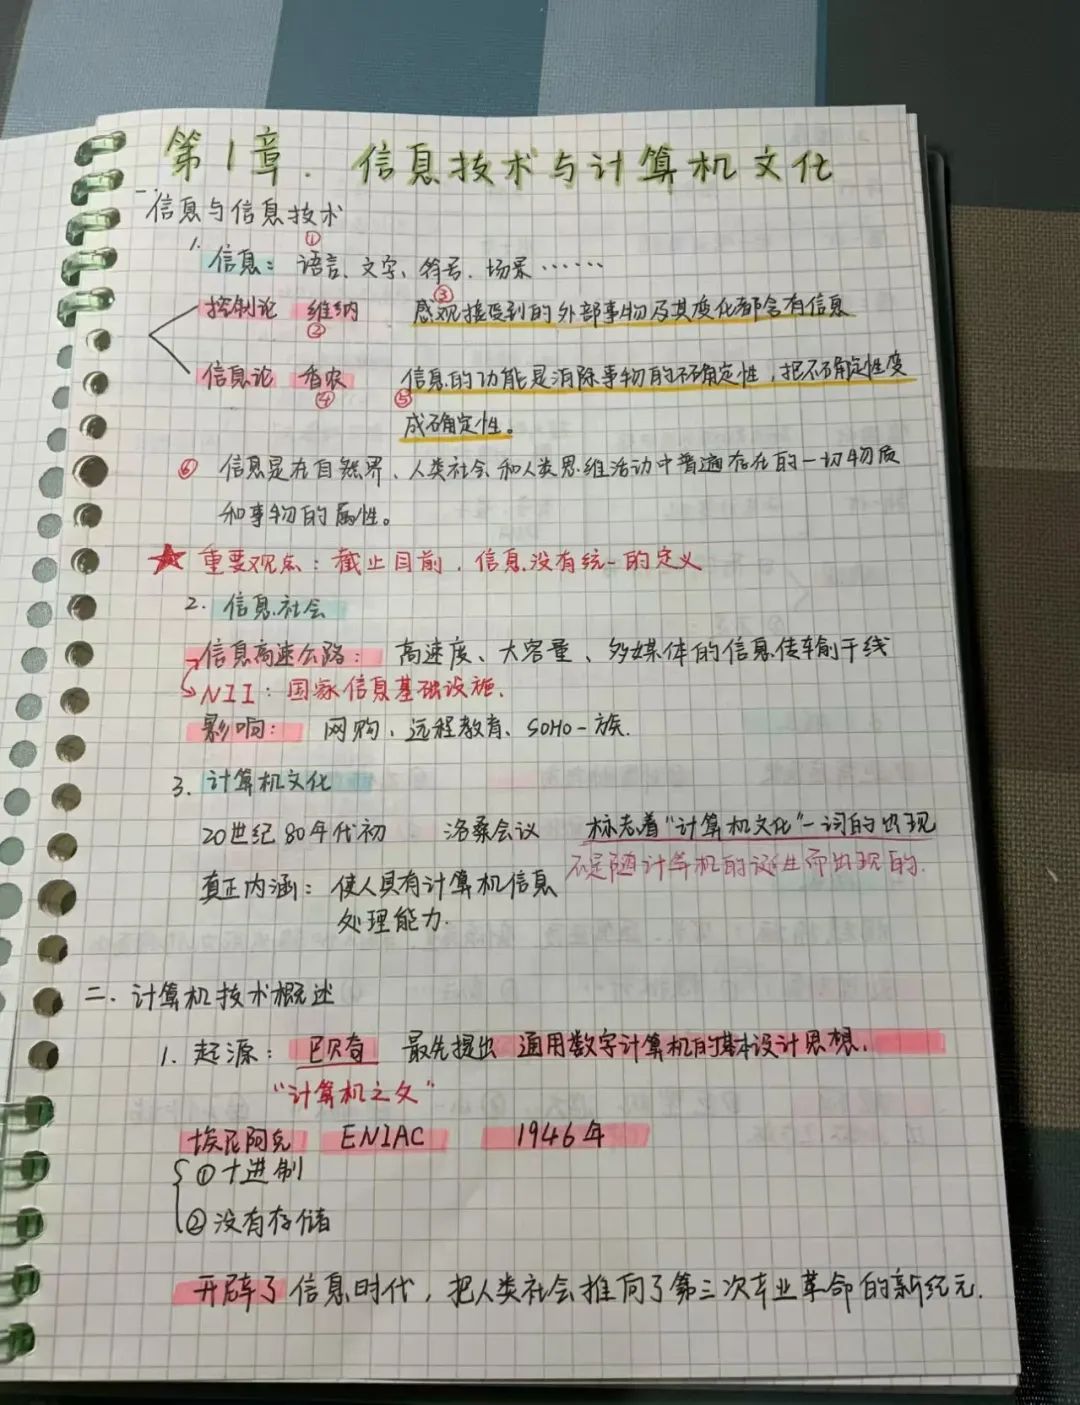 第1章. 信息技术与计算机文化
一. 信息与信息技术
1. 信息: ①语言、文字、符号、场景……
控制论 维纳② ③感观接受到的外部事物及其变化都含有信息
信息论 香农④ ⑤信息的功能是消除事物的不确定性，把不确定性变
成确定性。
⑥ 信息是在自然界、人类社会和人类思维活动中普遍存在的一切物质
和事物的属性。
★ 重要观点: 截止目前, 信息没有统一的定义
2. 信息社会
信息高速公路: 高速度、大容量、多媒体的信息传输干线
NII: 国家信息基础设施.
影响: 网购、远程教育、SOHO一族.
3. 计算机文化
20世纪80年代初 洛桑会议 标志着"计算机文化"一词的出现
不是随计算机的诞生而出现的.
真正内涵: 使人具有计算机信息
处理能力.
二. 计算机技术概述
1. 起源: 巴贝奇 最先提出 通用数字计算机的基本设计思想.
"计算机之父"
埃尼阿克 ENIAC 1946年
①十进制
②没有存储
开辟了信息时代，把人类社会推向了第三次产业革命的新纪元.